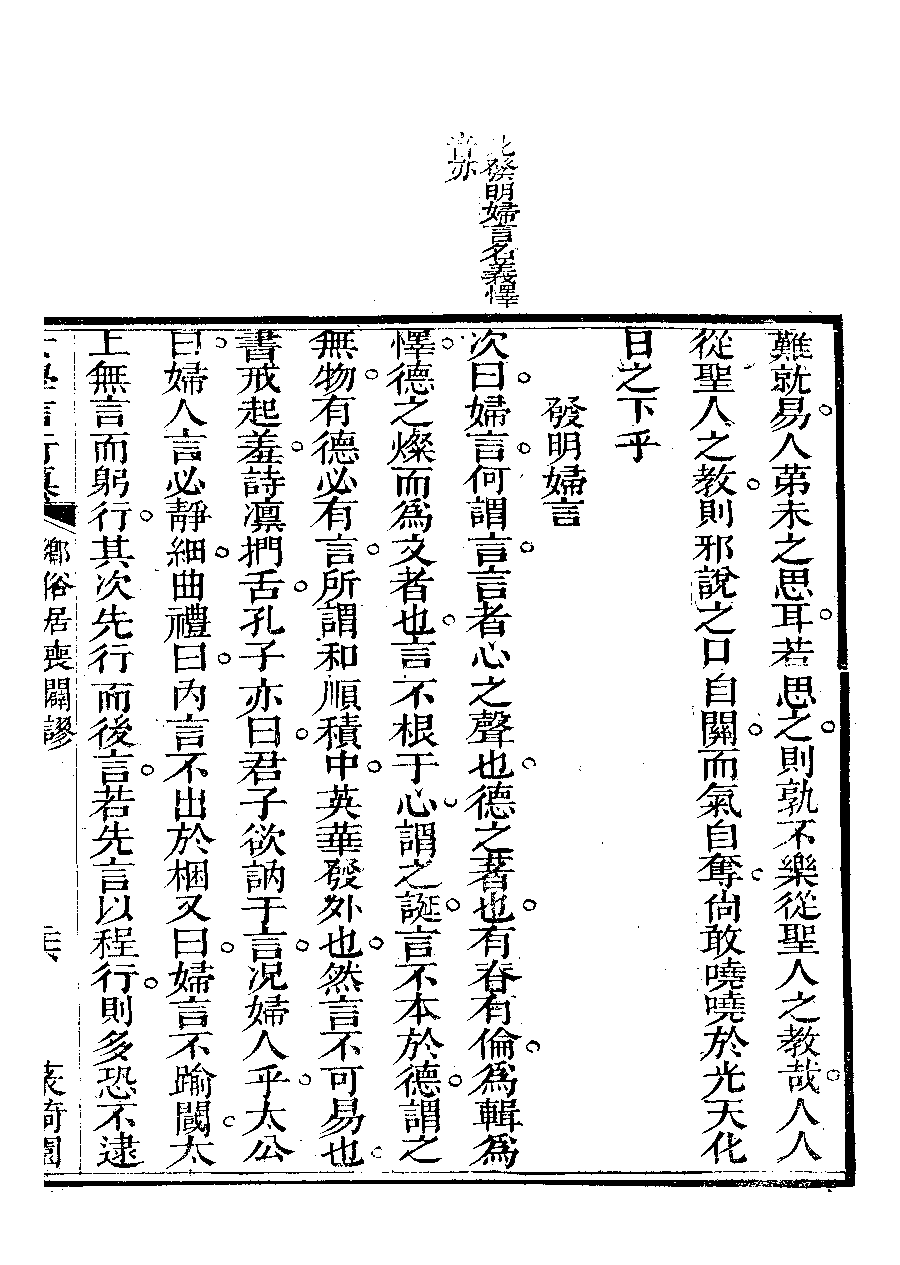 發明婦言名義懌
難就易人苐未之思耳若思之則孰不樂從聖人之教哉人人
從聖人之教則邪說之口自關而氣自奪尙敢嘵嘵於光天化
日之下乎
發明婦言
次曰婦言何謂言言者心之聲也德之著也有春有倫爲輯爲
懌德之燦而爲文者也言不根于心謂之誕言不本於德謂之
無物有德必有言所謂和順積中英華發外也然言不可易也
書戒起羞詩凛捫舌孔子亦曰君子欲訥于言況婦人乎太公
曰婦人言必靜細曲禮曰內言不出於梱又曰婦言不踰閾太
上無言而躬行其次先行而後言若先言以程行則多恐不逮
言行
鄉俗居喪闢謬